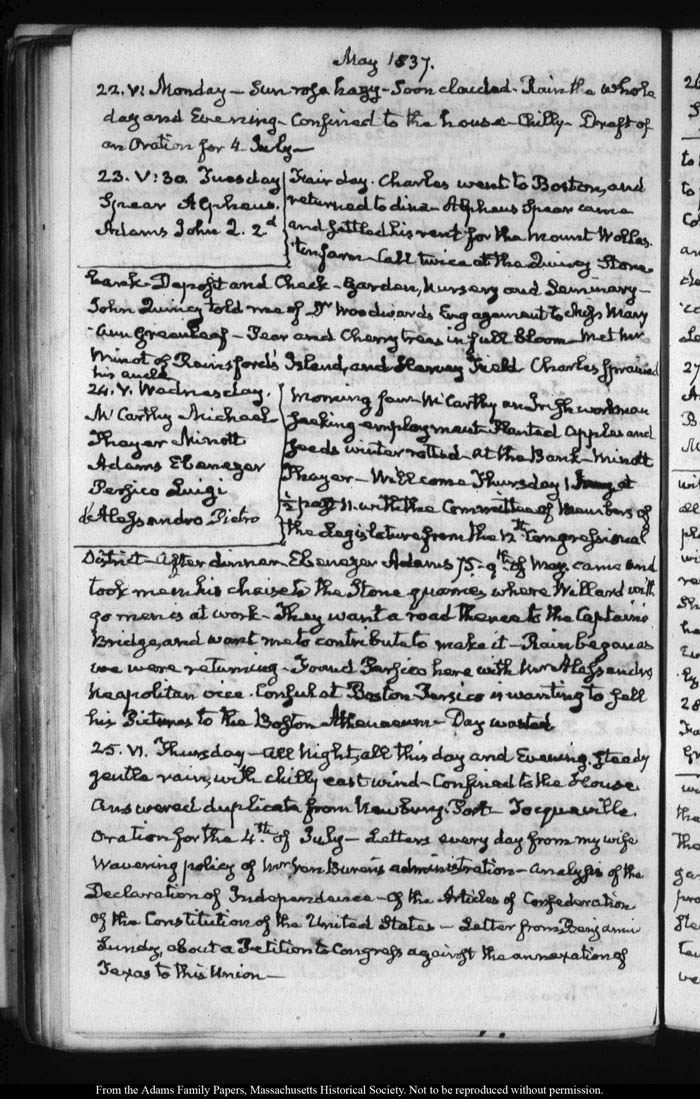 May 1837.
22. V: Monday — Sun rose hazy - Soon clouded - Rain the whole
day and Evening - Confined to the house - Chilly - Draft of
an Oration for 4 July —
23. V:30. Tuesday
Spear Alpheus.
Adams John Q. 2.d
Fair day. Charles went to Boston, and
returned to dine - Alpheus Spear came
and settled his rent for the Mount Wollas-
ton farm - Call twice at the Quincy Stone
bank - Deposit and Check - Garden, Nursery and Seminary —
John Quincy told me of Dr Woodward's Engagement to Miss Mary
Ann Greenleaf - Pear and Cherry trees in full bloom - Met Mr
Minot of Rainsford's Island, and Harvey Field Charles sprained
his ancle
24. V. Wednesday.
McCarthy Michael
Thayer Minott
Adams Ebenezer
Persico Luigi
d'Alessandro Pietro
Morning four - McCarthy an Irish workman
seeking employment - Planted apples and
seeds winter rotted - at the Bank - Minott
Thayer - Will come Thursday 1 June at
½ past 11. with the Committee of Members of
the Legislature from the 12th Congressional
District - After dinner Ebenezer Adams 75 - 9th of May. came and
took me in his chaise to the Stone quarries where Willard with
90 men is at work - They want a road thence to the Captain's
Bridge, and want me to contribute to make it - Rain began as
we were returning - Found Persico here with Mr Alessandro
Neapolitan vice-Consul at Boston - Persico is wanting to sell
his Pictures to the Boston Athenaeum - Day wasted
25. VI. Thursday - all Night, all this day and Evening, steady
gentle rain, with chilly east wind - Confined to the House.
Answered duplicate from Newbury-Port - Tocqueville.
Oration for the 4th of July - Letters every day from my wife
Wavering policy of Mr Van Buren's administration - Analysis of the
Declaration of Independence - Of the Articles of Confederation
of the Constitution of the United States - Letter from Benjamin
Lundy, about a Petition to Congress against the annexation of
Texas to this Union —
From the Adams Family Papers, Massachusetts Historical Society. Not to be reproduced without permission.